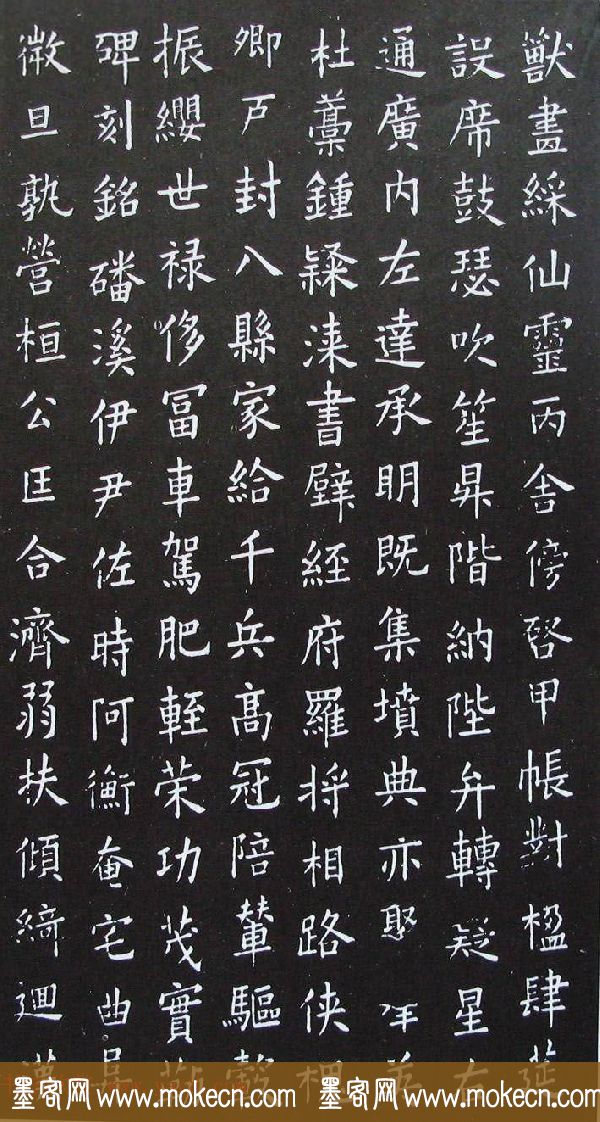 獸畫綵仙靈丙舍傍啓甲帳對楹肆
設席鼓瑟吹笙昇階納陛弁轉疑星右
通廣内左達承明既集墳典亦聚
杜藁鍾隸漆書壁經府羅将相路俠槐
卿戶封八縣家給千兵高冠陪輦驅轂
振纓世禄侈冨車駕肥輕荣功茂實
碑刻銘磻溪伊尹佐時阿衡奄宅曲
微旦孰營桓公匡合濟弱扶傾綺迴
墨客网 www.mokecn.com 墨客网 www.mokecn.com